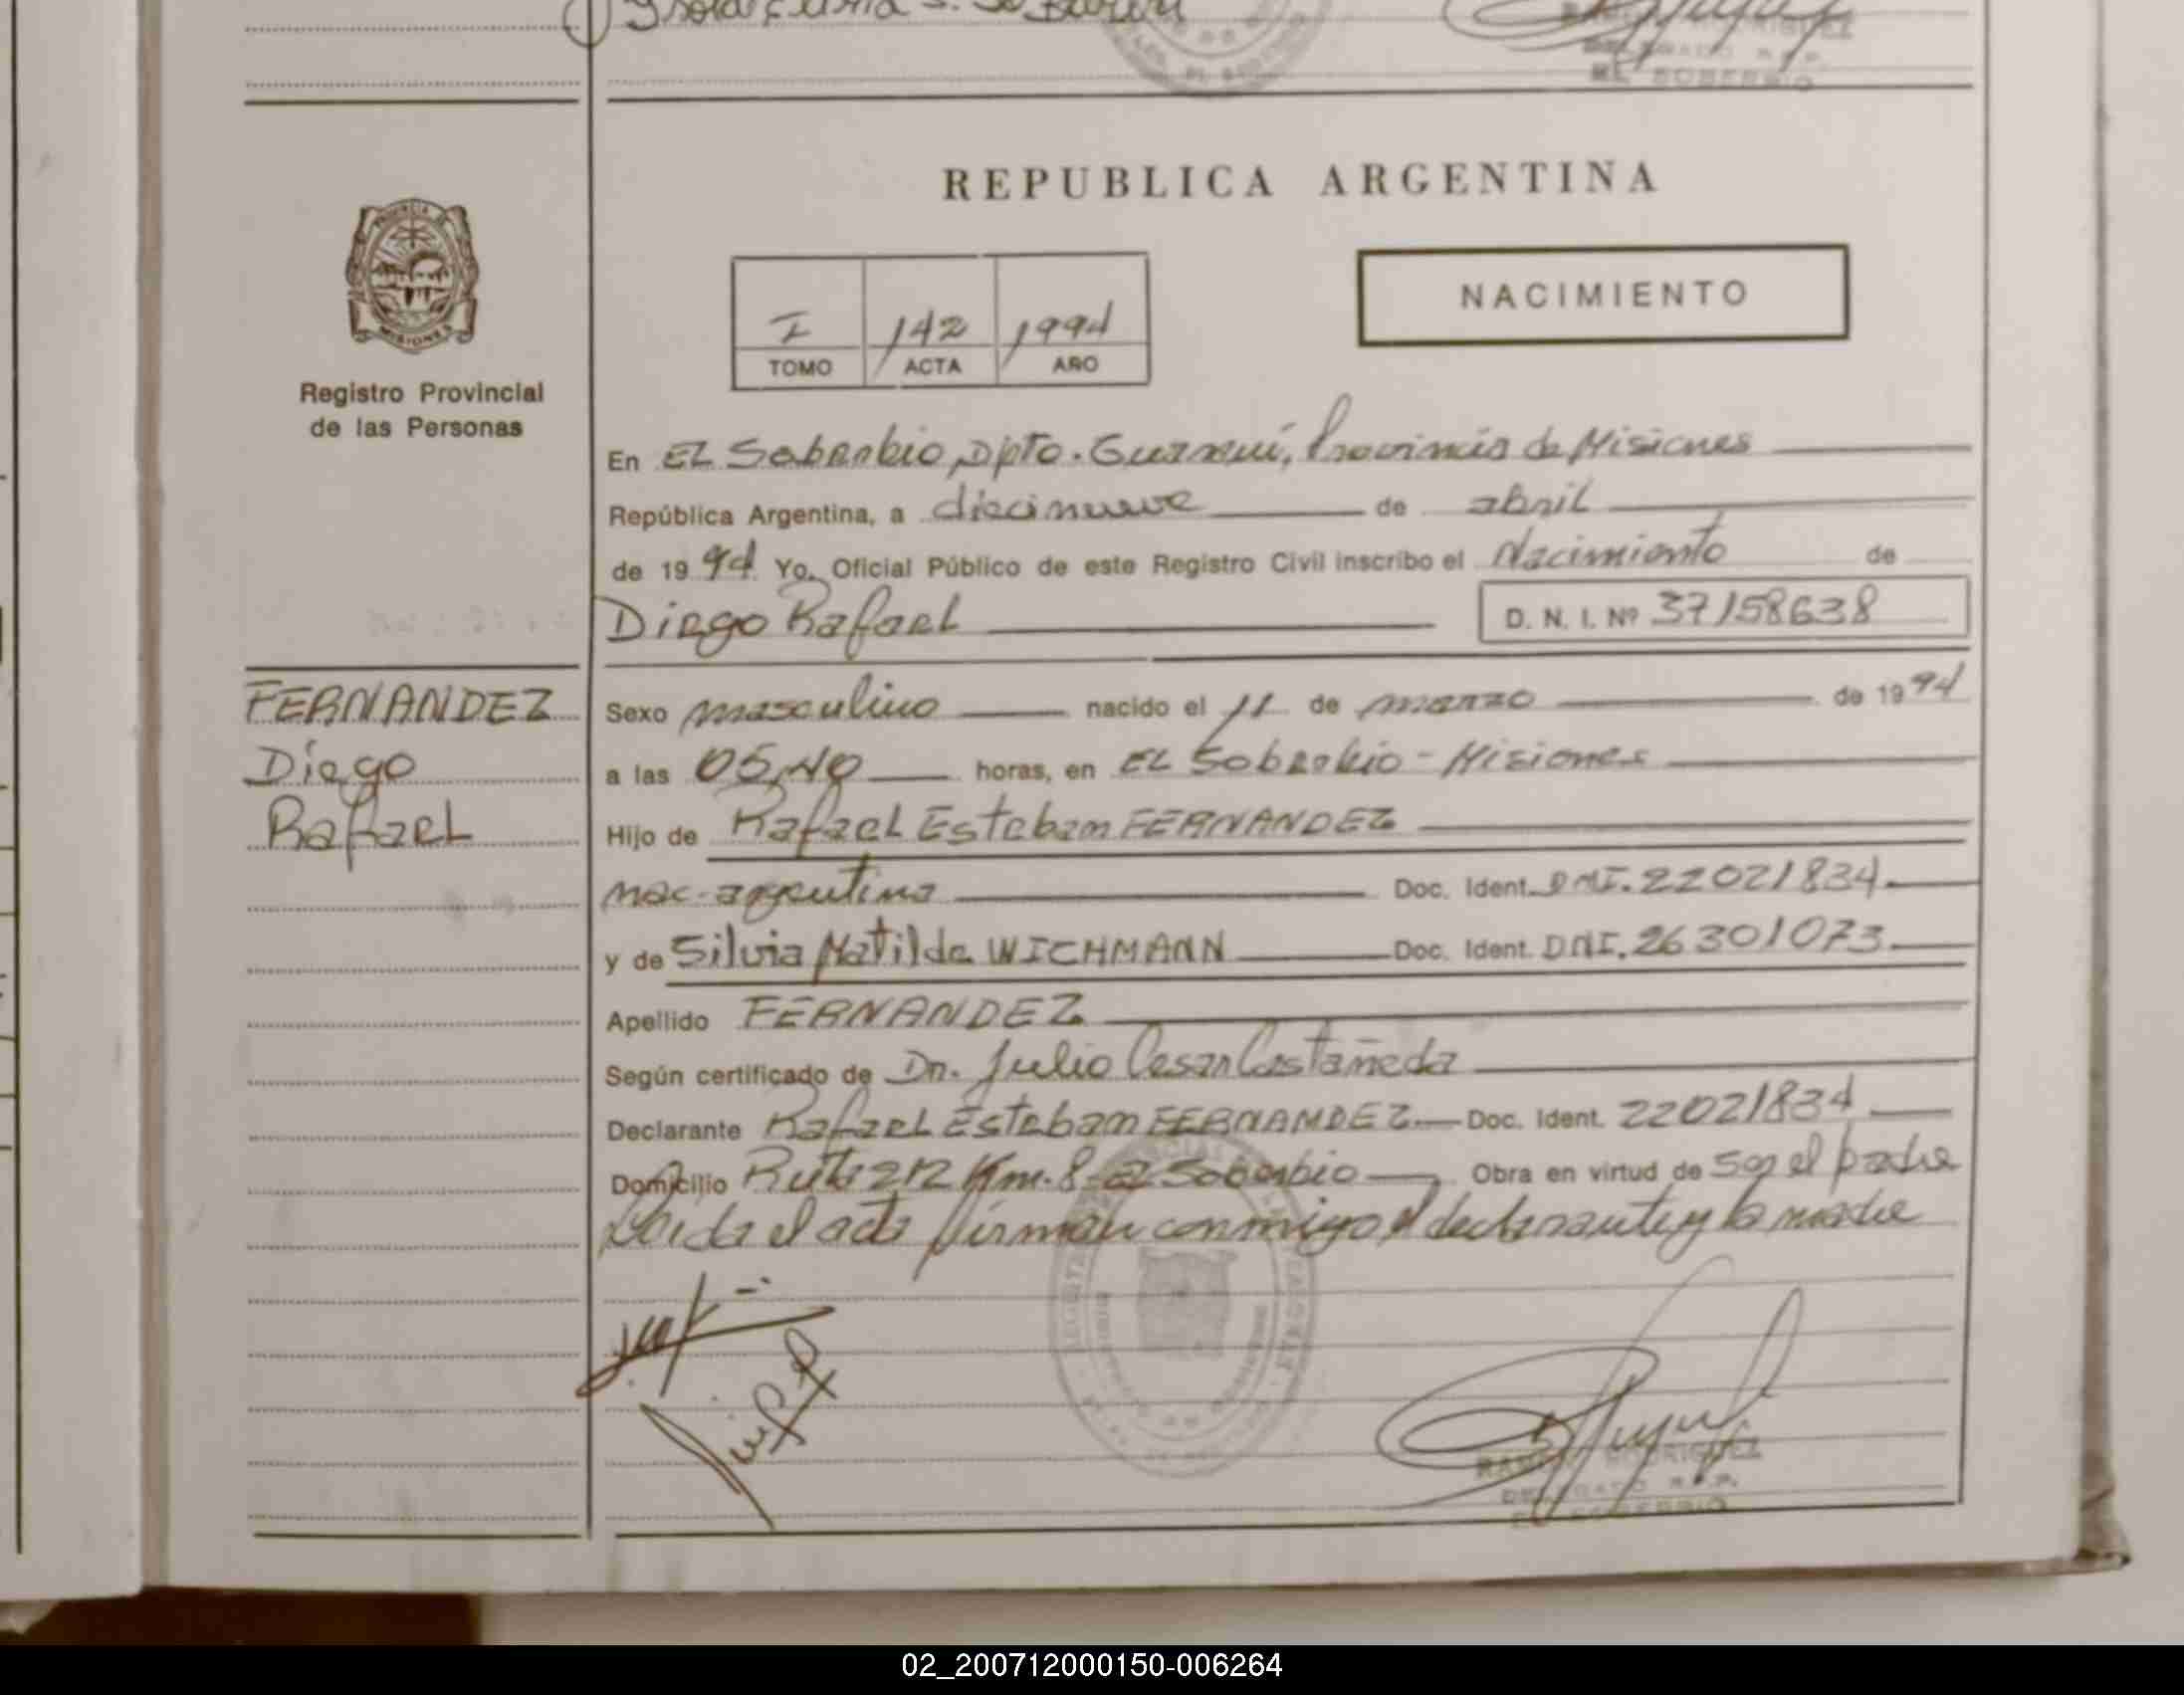 REPUBLICA ARGENTINA
PROVINCIA DE
MISIONES
Registro Provincial
de las Personas
I 142 1994
TOMO ACTA AÑO
NACIMIENTO
En EL Soberbio, Dpto. Guaraní, Provincia de Misiones
República Argentina, a diecinueve de abril
de 1994 Yo, Oficial Público de este Registro Civil inscribo el Nacimiento de
Diego Rafael D. N. I. Nº 37158638
FERNANDEZ
Diego
Rafael
Sexo masculino nacido el 11 de marzo de 1994
a las 05,40 horas, en EL Soberbio - Misiones
Hijo de Rafael Esteban FERNANDEZ
nac. argentina Doc. Ident. DNI. 22021834
y de Silvia Matilde WICHMANN Doc. Ident. DNI. 26301073
Apellido FERNANDEZ
Según certificado de Dr. Julio Cesar Castañeda
Declarante Rafael Esteban FERNANDEZ Doc. Ident. 22021834
Domicilio Ruta 212 Km. 8 - El Soberbio Obra en virtud de ser el padre
Leida el acta firman conmigo el declarante y la madre
RAMON RODRIGUEZ
DELEGADO R.P.P.
EL SOBERBIO
02_200712000150-006264